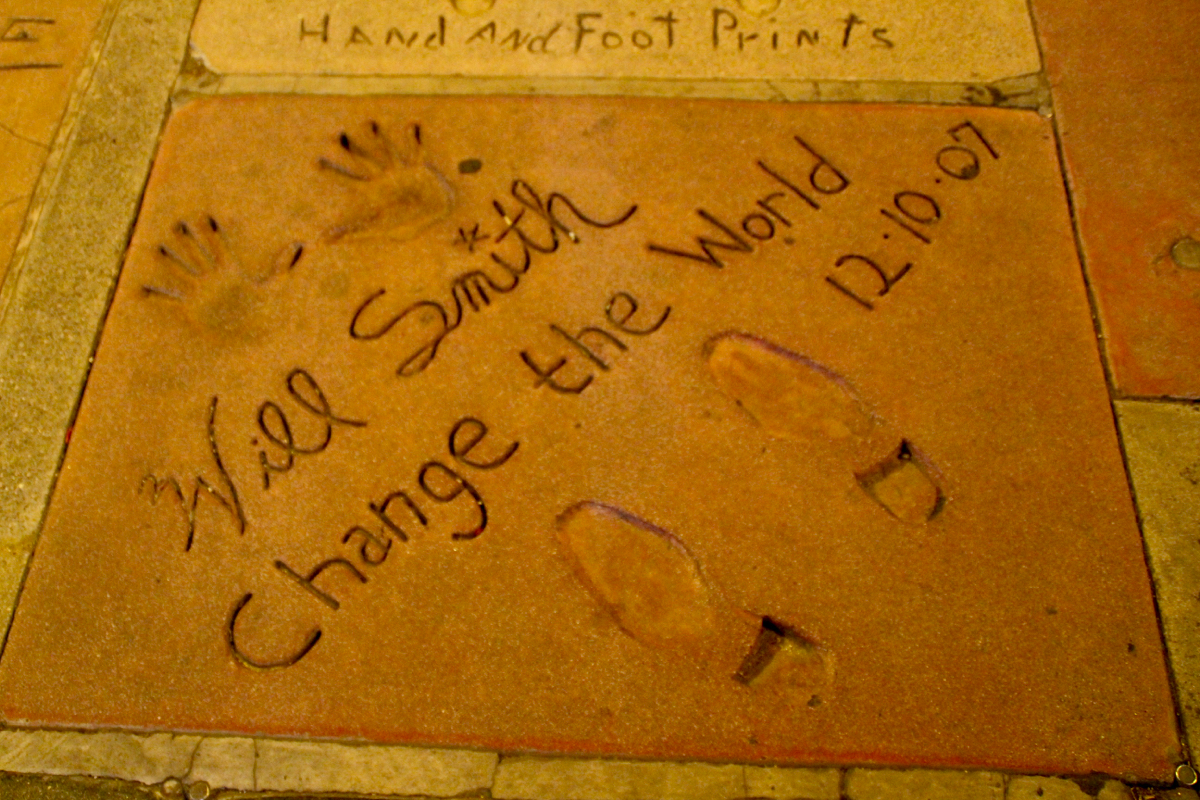 Hand And Foot Prints
Will Smith
Change the World
12.10.07